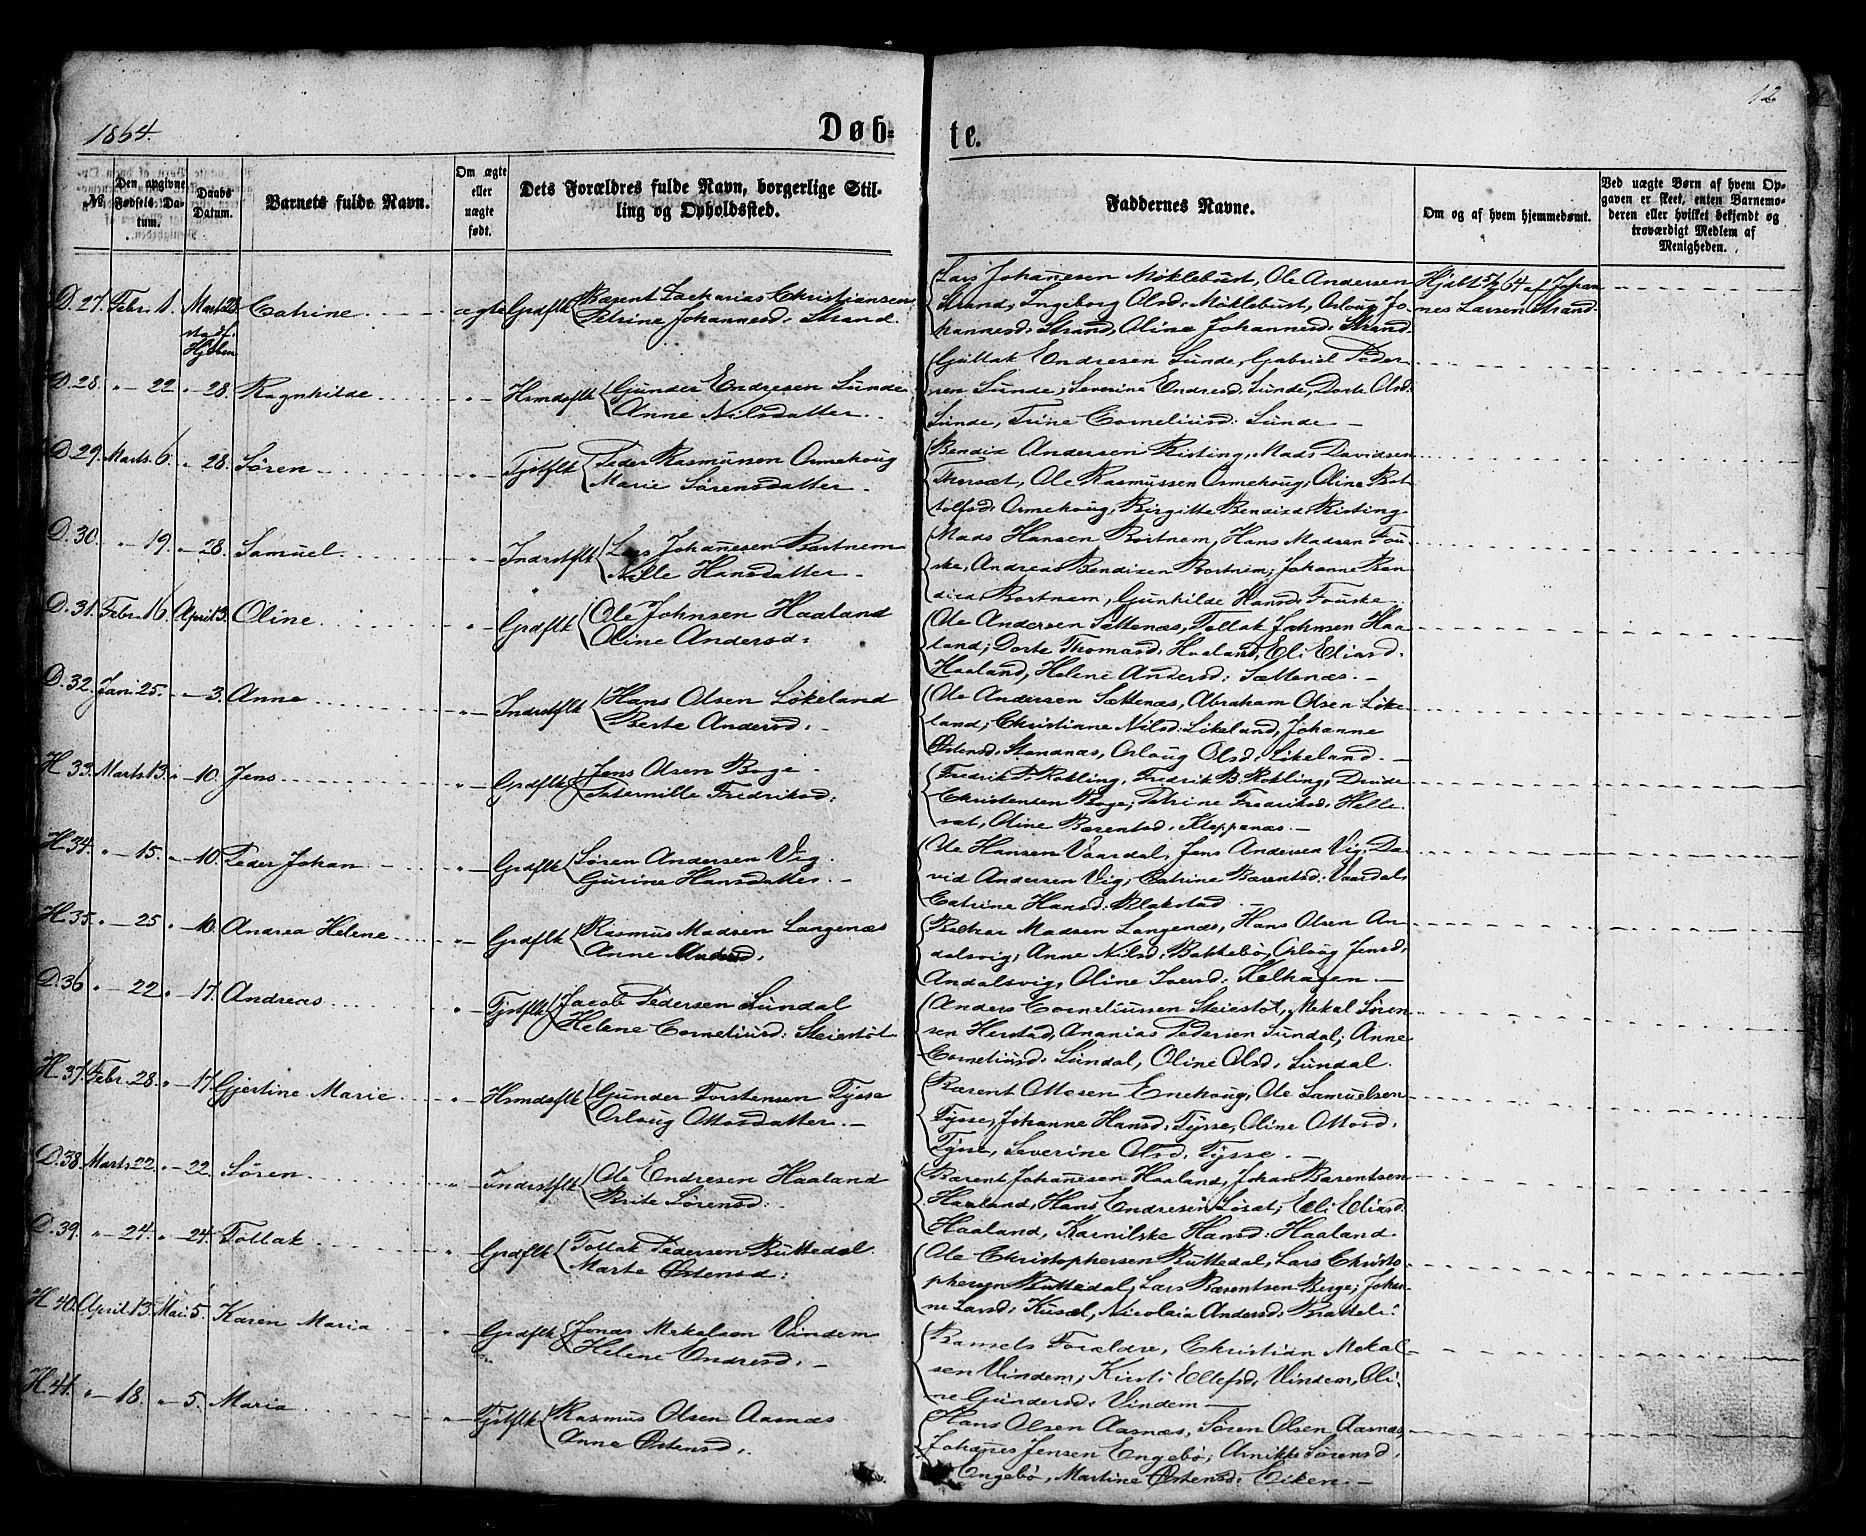 1864.
Døb=
te.
12
№
Den angivne Fødsels Da-tum.
Daabs Datum.
Barnets fulde Navn.
Om ægte eller uægte født.
Dets Forældres fulde Navn, borgerlige Stil-
ling og Opholdssted.
Faddernes Navne.
Om og af hvem hjemmedøbt.
Ved uægte Børn af hvem Op-
gaven er skeet, enten Barnemo-
deren eller hvilket bekjendt og
troværdigt Medlem af
Menigheden.
D. 27. Febr. 1. Marts 28 Catrine ægte Grdflk Bærent Zacharias Christiansen
Petrine Johannesd: Strand
stadf.
Hjdben
Lars Johanesen Møklebust, Ole Andersen
Strand, Ingeborg Olsd: Møklebust, Orloug Jo-
hannesd: Strand, Oline Johannesd: Strand
Hjdbt 5/2 64 af Johan-
nes Larsen Strand
D. 28. " 22 " 28. Ragnhilde " Hsmdsflk Gunder Endresen Sunde
Anne Nilsdatter
Guttak Endresen Sunde, Gabriel Peder-
sen Sunde; Severine Endresd: Sunde, Dorte Olsd:
Sunde, Trine Corneliusd: Sunde
D. 29. Marts 6. " 28. Søren " Tjstflk Peder Rasmussen Ormehoug
Marie Sørensdatter
Bendix Andersen Risting, Mads Davidsen
Thorsæt, Ole Rasmussen Ormehoug; Oline Bot-
tolfsd: Ormehoug, Birgitte Bendixd Risting
D. 30. " 19. " 28. Samuel " Indrstflk Lars Johanesen Bortnem
Nille Hansdatter
Mads Hansen Bortnem, Hans Madsen Fou-
ske, Andreas Bendixen Bortnem; Johanne Ben-
dixd Bortnem, Gunhilde Hansd: Fouske
D. 31. Febr. 16 April 3. Oline " Grdflk Ole Johnsen Haaland
Oline Andersd:
Ole Andersen Sættenæs, Tollak Johnsen Haa-
land; Dorte Thomasd: Haaland, Eli Eliasd:
Haaland, Helene Andersd: Sættenæs.
D. 32. Jan. 25. " 3. Anne " Indrstflk Hans Olsen Løkeland
Berte Andersd:
Ole Andersen Sættenæs, Abraham Olsen Like-
land; Christiane Nilsd: Likeland, Johanne
Østensd: Standnæs, Orloug Olsd: Likeland.
H. 33. Marts 13. " 10. Jens " Grdflk Jens Olsen Boge
Paternille Fredriksd:
Fredrik P. Kobling, Fredrik B. Kobling, David
Christensen Boge; Petrine Fredriksd: Helle-
sæt, Oline Bærentsd: Kleppenæs.
H. 34. " 15. " 10. Peder Johan " Grdflk Søren Andersen Vig
Gurine Hansdatter
Ole Hansen Vaardal, Jens Andersen Vig, Da-
vid Andersen Vig; Catrine Bærentsd: Vaardal,
Catrine Hansd: Blakstad
H. 35. " 25 " 10. Andrea Helene " Grdflk Rasmus Madsen Langenæs
Anne Andersd;
Madsen Langenæs, Hans Olsen An-
dalsvig; Anne Nilsd: Bakkebø, Orloug Jensd:
Andalsvig, Oline Iversd: Kalhagen
D. 36 " 22 " 17. Andreas " Tjstflk Jacob Pedersen Sundal
Helene Corneliusd: Steiestøl
Anders Corneliussen Steiestøl, Mekal Søren-
sen Herstad, Ananias Pedersen Sundal; Anne
Corneliusd: Sundal, Oline Olsd: Sundal.
H. 37. Febr. 28. " 17. Gjertine Marie " Hsmdsflk Gunder Torstensen Tysse
Orloug Ottosdatter
Bærent Ottosen Enehoug, Ole Samuelsen
Tysse; Johanne Hansd: Tysse, Oline Ottosd:
Tysse, Severine Olsd: Tysse.
D. 38. Marts 22. " 22. Søren " Indrstflk Ole Endresen Haaland
Brite Sørensd:
Bærent Johanesen Haaland, Johan Bærentsen
Haaland, Hans Endresen Løsæt; Eli Eliasd:
Haaland, Karnilske Hansd: Haaland
D. 39. " 24. " 24. Tollak " Grdflk Tollak Pedersen Buttedal
Marte Østensd:
Ole Christophersen Buttedal, Lars Christo-
phersen Buttedal, Lars Bærentsen Berge; Johan-
ne Larsd: Kusæl, Nicolaia Andersd: Brattel:
H. 40. April 13. Mai 5. Karen Maria " Grdflk Jonas Mekalsen Vindem
Helene Andresd:
Barnets Forældre, Christian Mekal-
sen Vindem; Kirsti Ellefsd; Vindem, Oli-
ne Gundersd: Vindem
H. 41. " 18. " 5. Maria " Tjstflk Rasmus Olsen Aasnæs
Anne Østensd:
Hans Olsen Aasnæs, Søren Olsen Aasnæs,
Johanes Jensen Engebø; Arnikke Sørensd:
Engebø, Martine Østensd: Eiken.